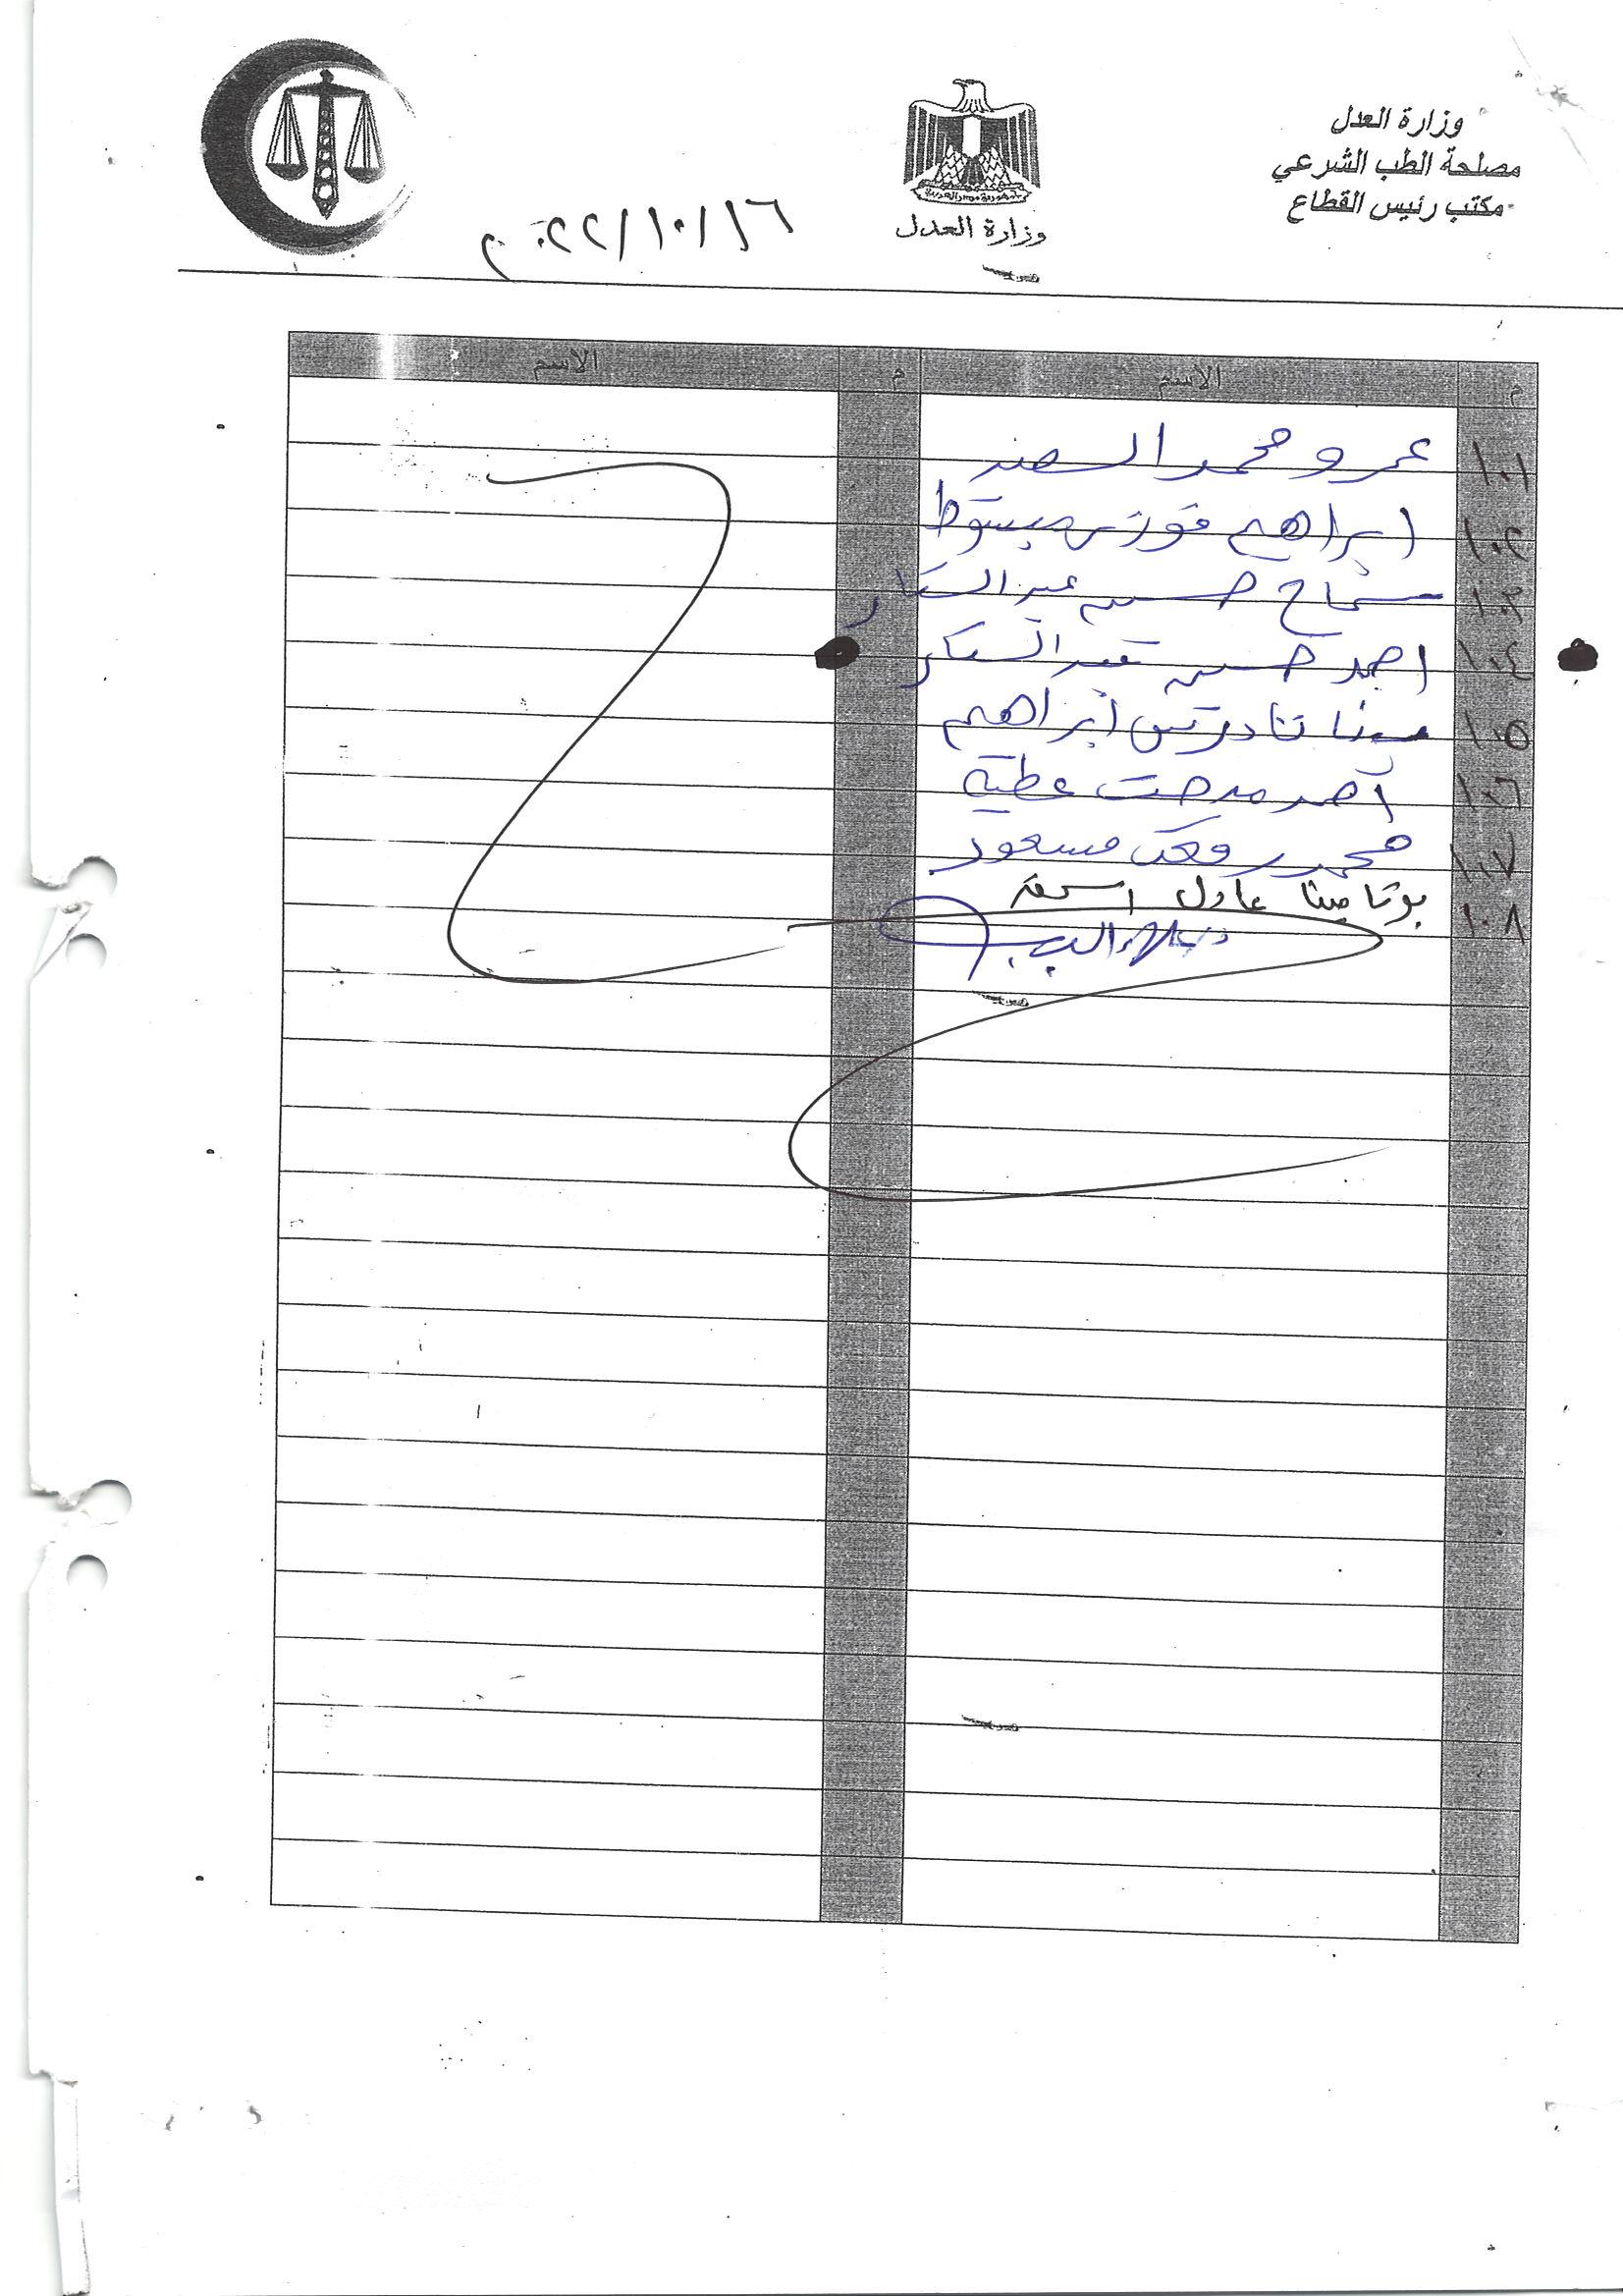 وزارة العدل
مصلحة الطب الشرعي
مكتب رئيس القطاع
وزارة العدل
١٦/١٠/٢٠٢٢م
م الاسم م الاسم
١٠١ عمرو محمد السيد
١٠٢ ابراهيم فوزى مبسوط
١٠٣ سماح حسين عبد الستار
١٠٤ احمد حسين
١٠٥ مينا تادرس ابراهيم
١٠٦ احمد مدحت عطية
١٠٧ محمد رفعت مسعود
١٠٨ يوتا مينا عادل